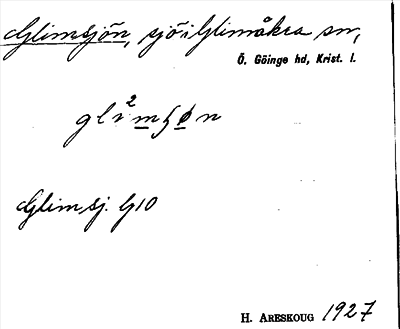 Glimsjön, sjö i Glimåkra sn,
Ö. Göinge hd, Krist. l.
gli²mʃøn
Glimsj. G10
H. ARESKOUG 1927